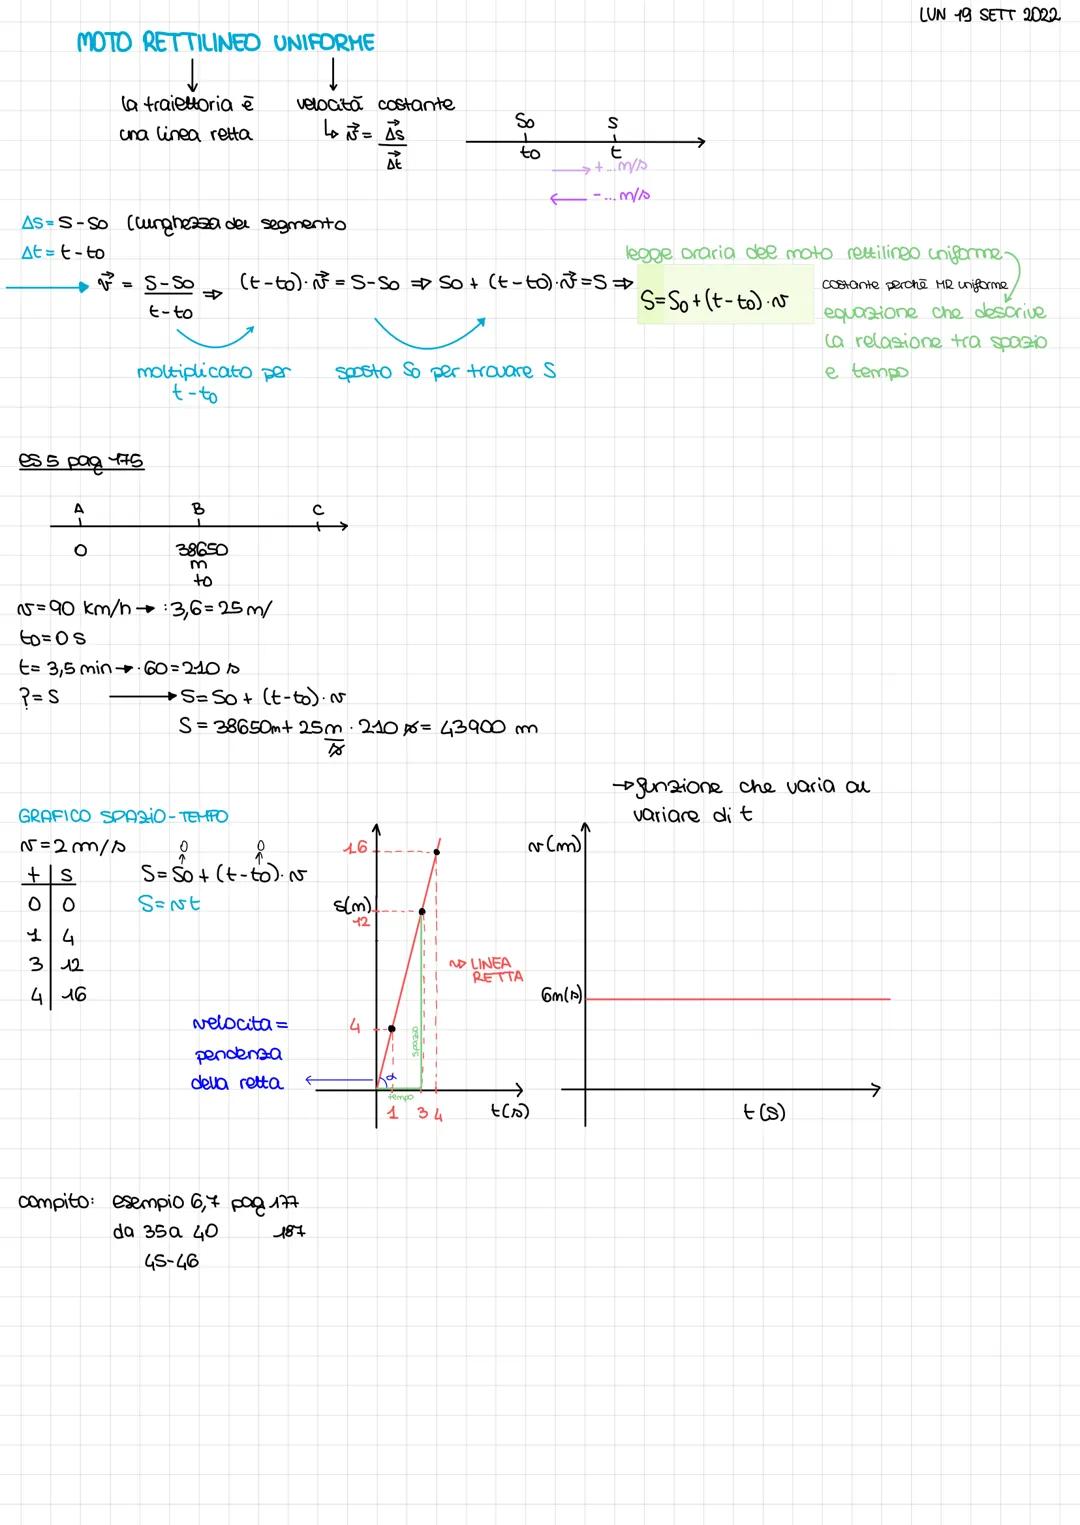 LUN 19 SETT 2022
MOTO RETTILINEO UNIFORME
la traiettoria è
una linea retta
velocità costante
↳ v⃗ = Δs⃗ / Δt⃗
So S
to t
→ + ... m/s
← - ... m/s
Δs = S - So (lunghezza del segmento
Δt = t - to
v⃗ = S-So / t-to ⇒ (t-to)·v⃗ = S-So ⇒ So + (t-to)·v⃗ = S ⇒ S = So + (t-to)·v
moltiplicato per
t-to
sposto So per trovare S
legge oraria del moto rettilineo uniforme
costante perché MR uniforme
equazione che descrive
la relazione tra spazio
e tempo
es 5 pag 175
A B C
0 38650
m
to
v = 90 km/h → :3,6 = 25 m/
to = 0 s
t = 3,5 min → ·60 = 210 s
? = S → S = So + (t-to)·v
S = 38650m + 25m/s · 210 s = 43900 m
→ funzione che varia al
variare di t
GRAFICO SPAZIO-TEMPO
v = 2 m/s
0 0
t | S
S = So + (t-to)·v
0 | 0
S = vt
1 | 4
3 | 12
4 | 16
16
s(m)
12
4
LINEA
RETTA
spazio
tempo
α
1 3 4
t(s)
velocità =
pendenza
della retta
v(m)
6m(s)
t(s)
compito: esempio 6,7 pag 177
da 35 a 40 187
45-46